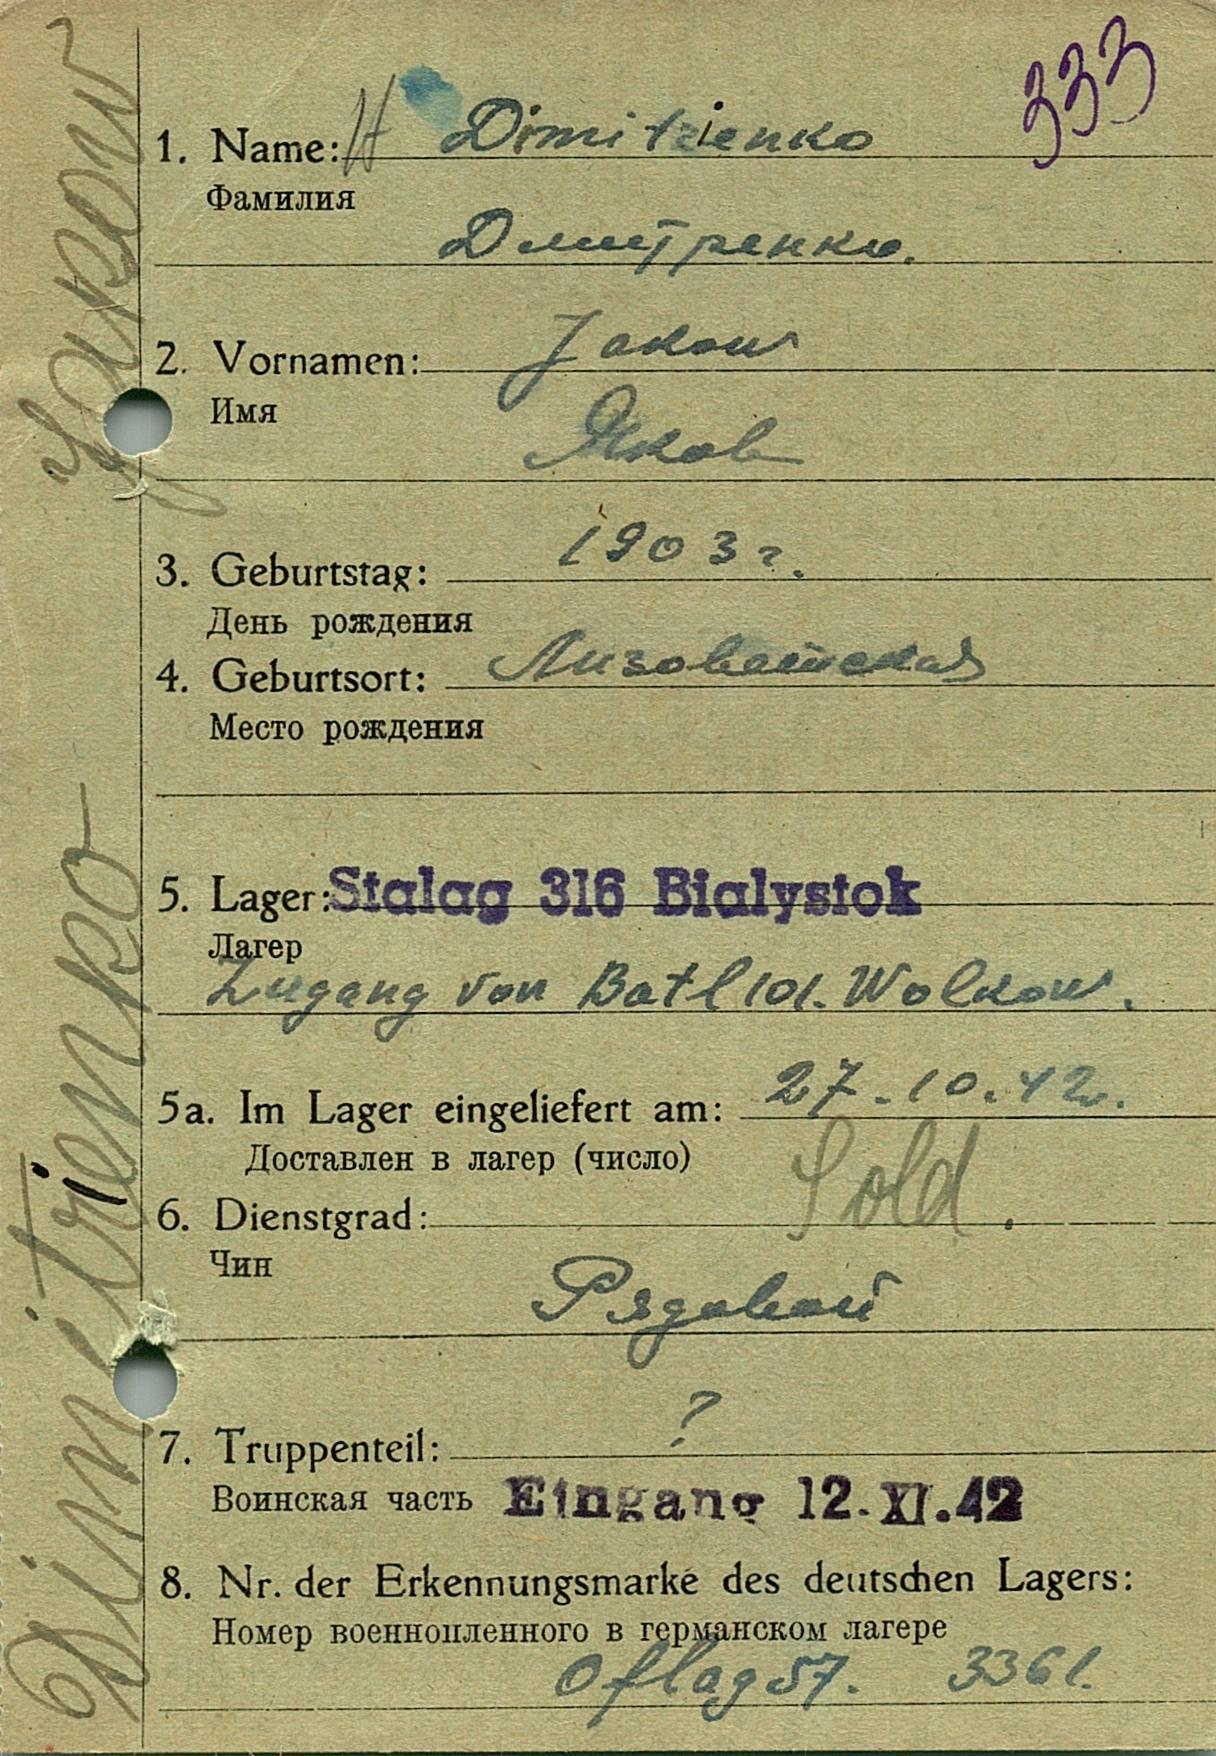 333
1. Name: H Dimitrienko
Фамилия
Дмитренко.
2. Vornamen: Jakow
Имя
Яков
3. Geburtstag: 1903 г.
День рождения
4. Geburtsort: Лизоветская
Место рождения
5. Lager: Stalag 316 Bialystok
Лагер
Zugang von Batl 101. Wolkow.
5a. Im Lager eingeliefert am: 27.10.42.
Доставлен в лагер (число)
6. Dienstgrad: Sold.
Чин
Рядовой
7. Truppenteil: ?
Воинская часть Eingang 12.XI.42
8. Nr. der Erkennungsmarke des deutschen Lagers:
Номер военнопленного в германском лагере
Oflag 57. 3361.
Dimitrienko Jakow